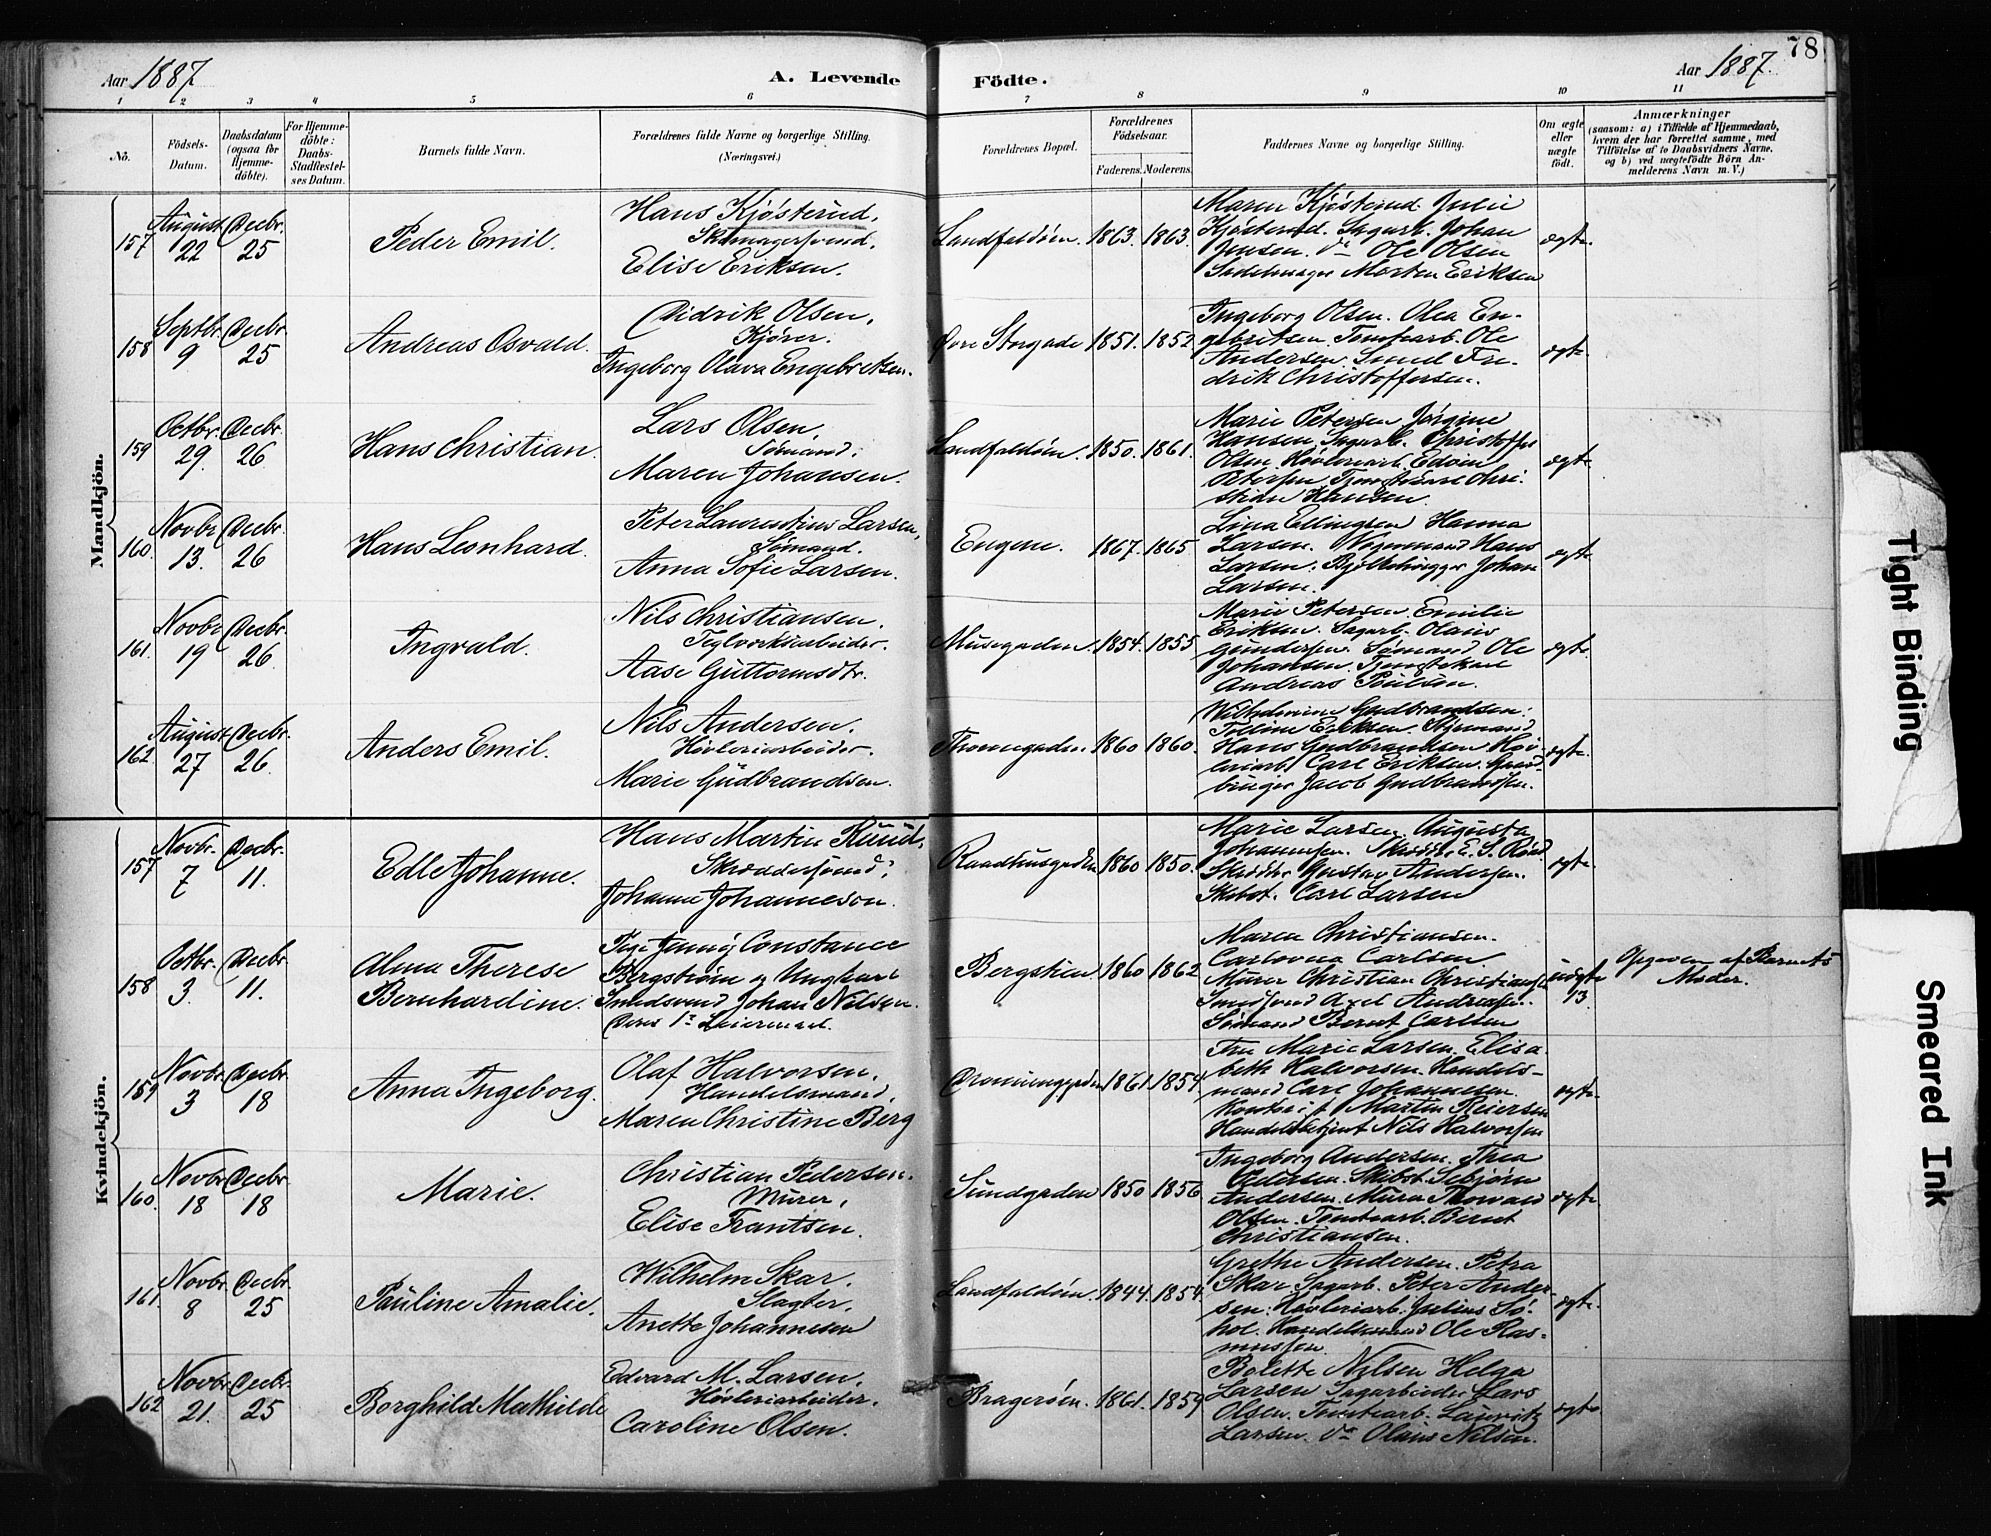 Aar 1887
A. Levende
Födte.
Aar 1887.
78
1 2 3 4 5 6 7 8 9 10 11
No.
Födsels-Datum.
Daabsdatum (ogsaa for Hjemme-döbte).
For Hjemme-döbte: Daabs-Stadfæstel-ses Datum.
Barnets fulde Navn.
Forældrenes fulde Navne og borgerlige Stilling. (Næringsvei.)
Forældrenes Bopæl.
Forældrenes Födselsaar.
Faderens. Moderens.
Faddernes Navne og borgerlige Stilling.
Om ægte eller uægte födt.
Anmærkninger (saasom: a) i Tilfælde af Hjemmedaab, hvem der har forrettet samme, med Tilföielse af to Daabsvidners Navne, og b) ved uægtefödte Börn An-melderens Navn m. V.)
Mandkjön.
157 August 22 Decbr. 25 Peder Emil.
Hans Kjøsterud,
Skomagersvend.
Elise Eriksen.
Landfaldöen. 1863. 1863.
Maren Kjøsterud Julie
Kjøsterud. Sagarb. Johan
Jensen. do Ole Olsen
Sadelmager Morten Eriksen
ægte.
158 Septbr. 9 Decbr. 25 Andreas Osvald.
Didrik Olsen,
Kjører.
Ingeborg Olava Engebretsen.
Øvre Storgade 1851. 1852.
Ingeborg Olsen. Olea En-
gebretsen. Tomtearb. Ole
Andersen. Smed Fre-
drik Christoffersen.
ægte
159 Octbr. 29. Decbr. 26 Hans Christian.
Lars Olsen,
Sømand,
Maren Johansen.
Landfaldöen. 1850. 1861.
Marie Petersen Jørgine
Hansen Sagarb. Christoffer
Olsen Høvleriarb. Edvin
Petersen Tjenestekarl Chri-
stian Hansen.
ægte
160. Novbr 13. Decbr. 26 Hans Leonhard.
Peter Laurentius Larsen,
Sømand.
Anna Sofie Larsen.
Engene. 1867. 1865
Lina Ellingsen Hanna
Larsen. Vognmand Hans
Larsen. Bjelkehugger Johan
Larsen.
ægte
161. Novbr 19 Decbr. 26 Ingvald.
Nils Christiansen.
Teglverksarbeider.
Aase Guttormsdtr.
Musegaden. 1854. 1855
Marie Petersen Emilie
Eriksen. Sagarb. Olaus
Gundersen. Sømand Ole
Johansen. Tjenestekarl
Andreas Poulsen.
ægte.
162. August 27 Decbr. 26. Anders Emil.
Nils Andersen.
Høvleriarbeider.
Marie Gudbrandsen.
Thornegaden 1860 1860.
Wilhelmine Gudbrandsen.
Eriksen. Styrmand
Hans Gudbrandsen Høv-
leriarb. Carl Eriksen. Gaard-
bruger Jacob Gudbrandsen.
ægte.
Kvindekjön.
157 Novbr. 7 Decbr. 11. Edle Johanne.
Hans Martin Ruud,
Skræddersvend,
Johanne Johannesen.
Raadhusgaden 1860 1850.
Marie Larsen Augusta
Johannesen. Skrædder E. S.
Skrædder Gustav Andersen.
Skibst. Carl Larsen
ægte
158 Octbr. 3. Decbr. 11. Alma Therese
Bernhardine.
Pige Jenny Constance
Bergstrøm og Ungkarl
Smedsvend Johan Nilsen.
Deres 1ste Leiermaal.
Bergstien 1860 1862
Maren Christiansen.
Carlovna Carlsen
Murer Christian Christiansen
Smedsvend Axel Andreasen.
Sømand Bernt Carlsen
uægte 13
Opgiven af Barnets
Moder.
159 Novbr. 3 Decbr. 18 Anna Ingeborg.
Olaf Halvorsen,
Handelsmand,
Maren Christine Berg
Dronninggaden 1861. 1854.
Fru Marie Larsen. Elisa-
beth Halvorsen. Handels-
mand Carl Johannesen.
Martin Reiersen
Handelsbetjent Nils Halvorsen
ægte.
160. Novbr. 18 Decbr. 18 Marie.
Christian Pedersen.
Murer,
Elise Frantsen.
Sundgaden 1850 1856
Ingeborg Andersen. Thea
Pedersen. Skibst. Sebjørn
Andersen. Murer Thorvald
Olsen. Tomtearb. Bernt
Christiansen.
ægte.
161. Novbr. 8 Decbr. 25 Pauline Amalie.
Wilhelm Skar.
Slagter.
Anette Johannesen
Landfaldöen. 1844. 1854.
Grethe Andersen. Petra
Skar Sagarb. Peter Ander-
sen. Høvleriarb. Julius Sø-
hol. Handelsmand Ole Ras-
mussen
ægte.
162 Novbr. 21. Decbr. 25 Borghild Mathilde
Edvard M. Larsen,
Høvleriarbeider.
Caroline Olsen.
Bragerøen. 1861. 1859
Bolette Nilsen Helga
Larsen Sagarbeider Lars
Olsen. Tomtearb. Lauritz
Larsen. do Olaus Nilsen.
ægte
Tight Binding
Smeared Ink